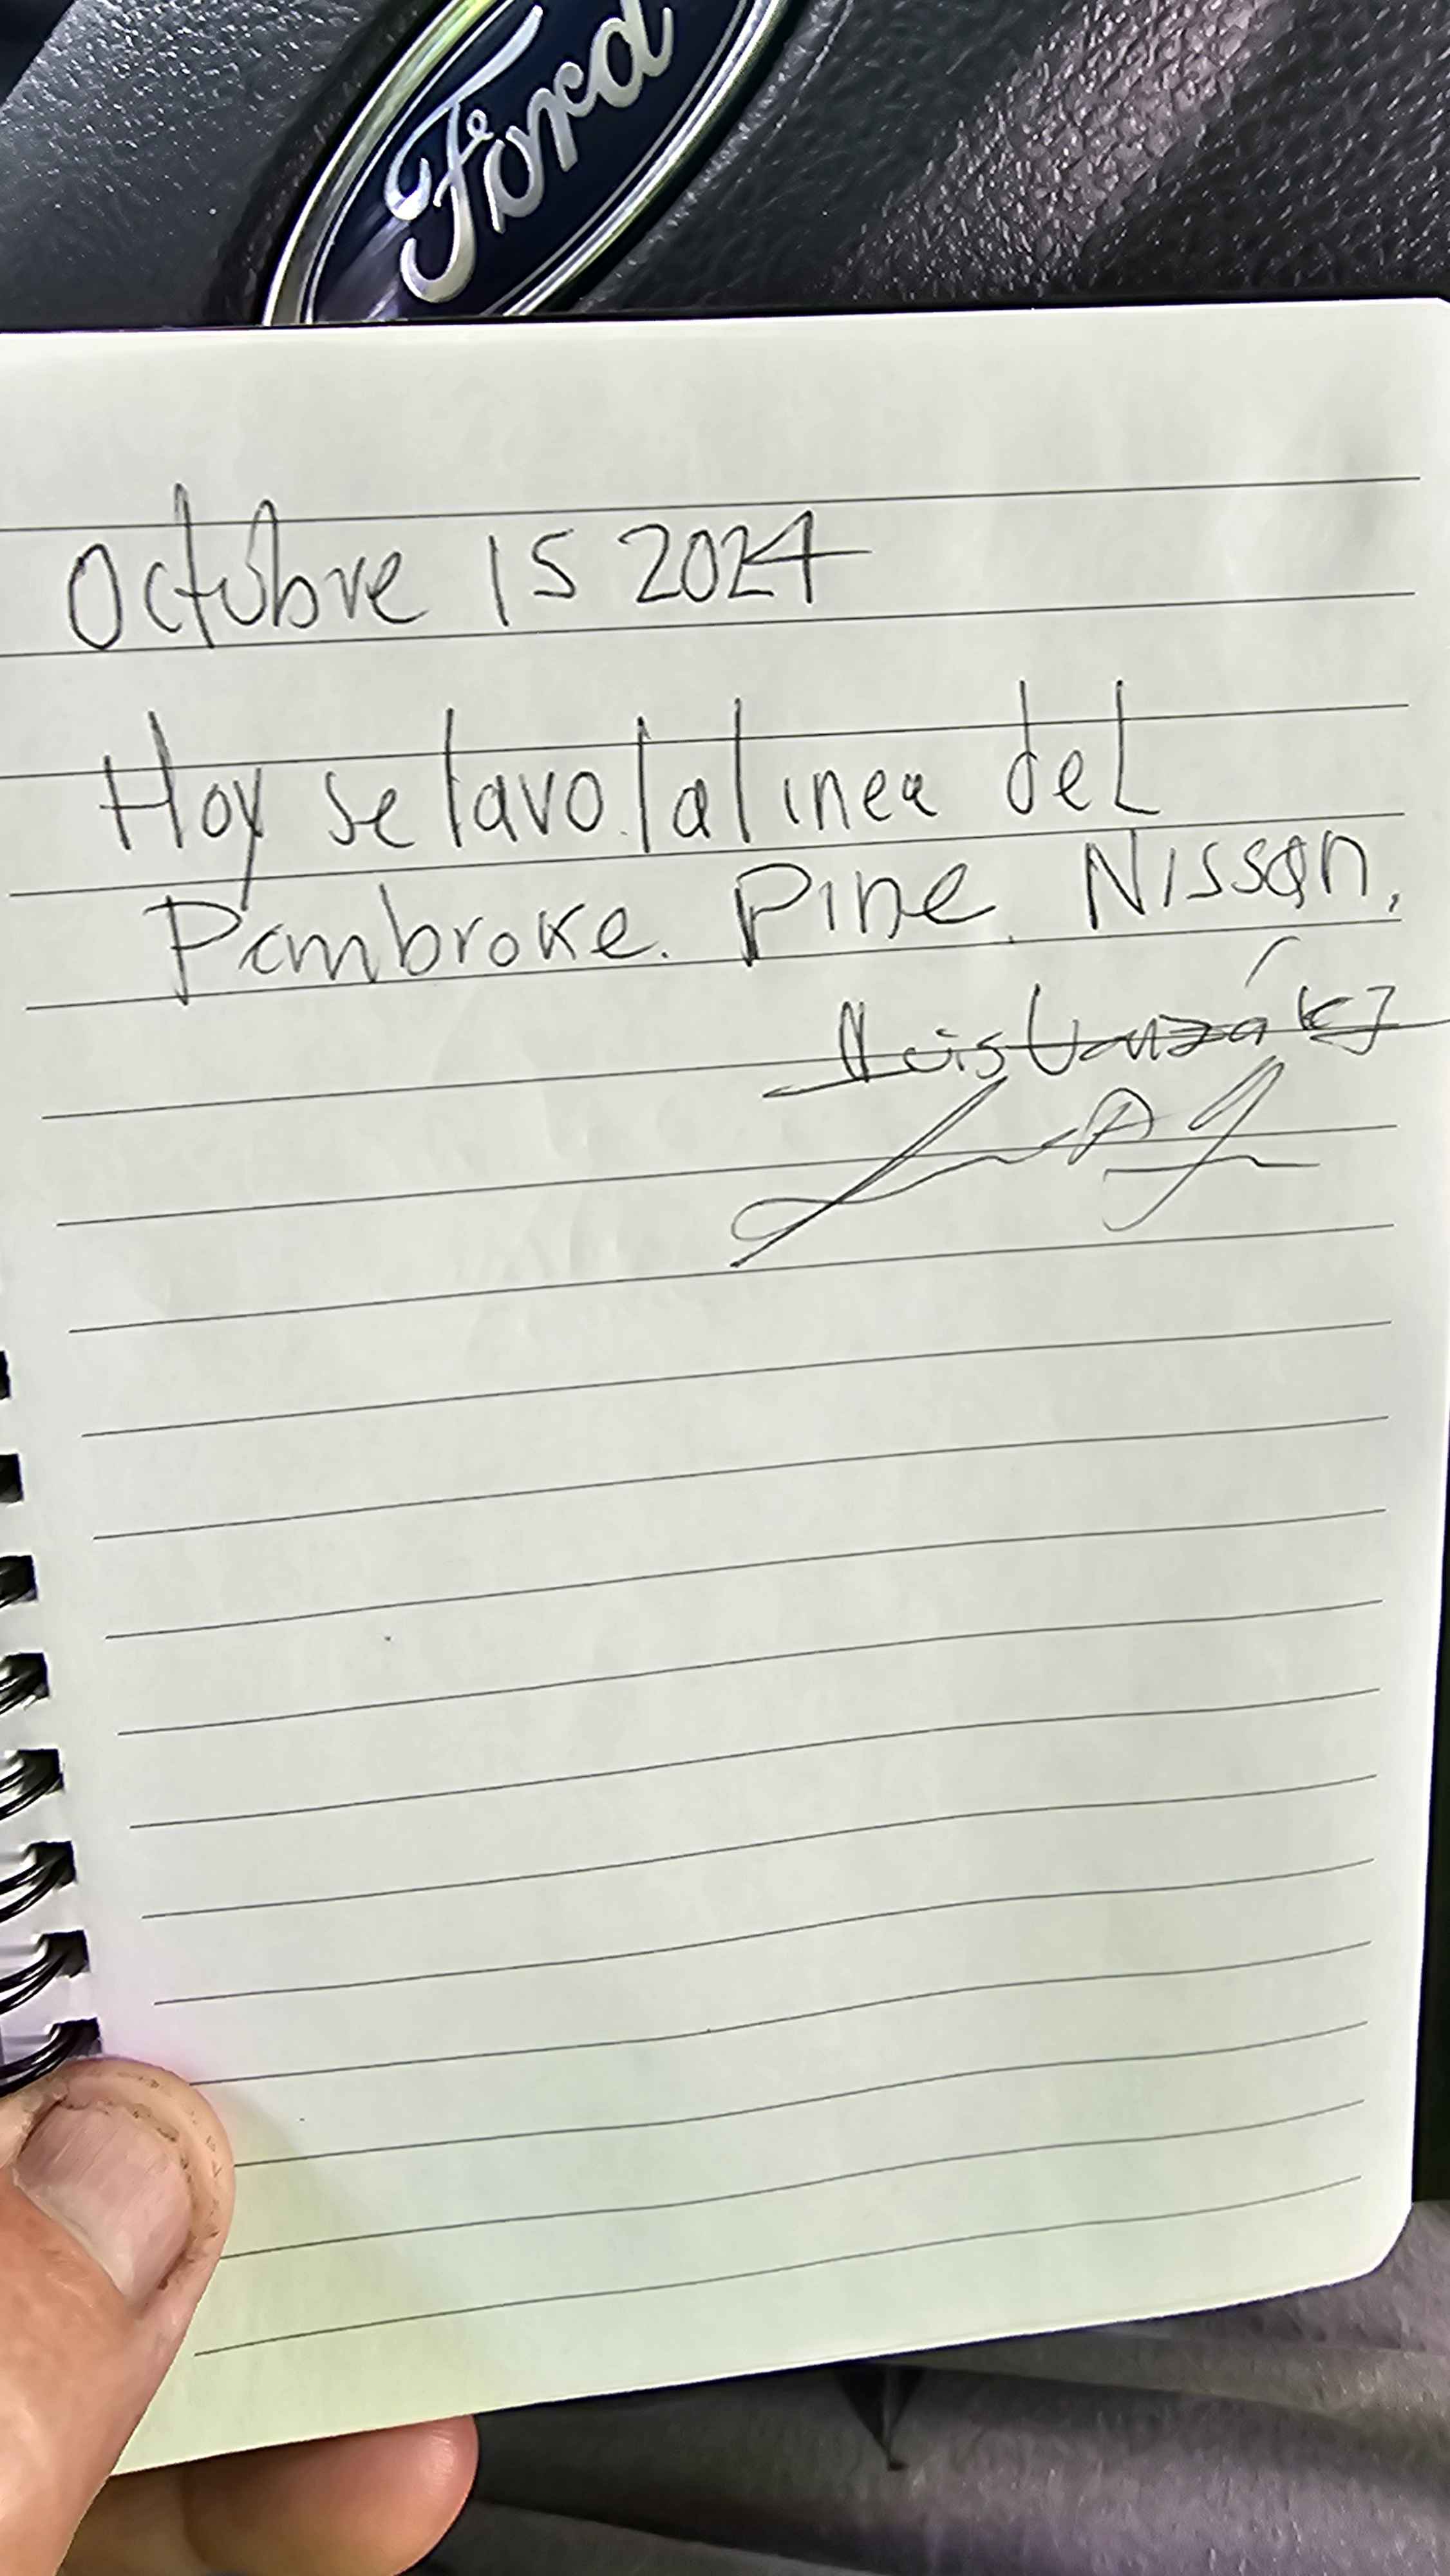 Ford
Octubre 15 2024
Hoy se lavo la linea del
Pembroke. Pine. Nissan.
Luis Gonzá